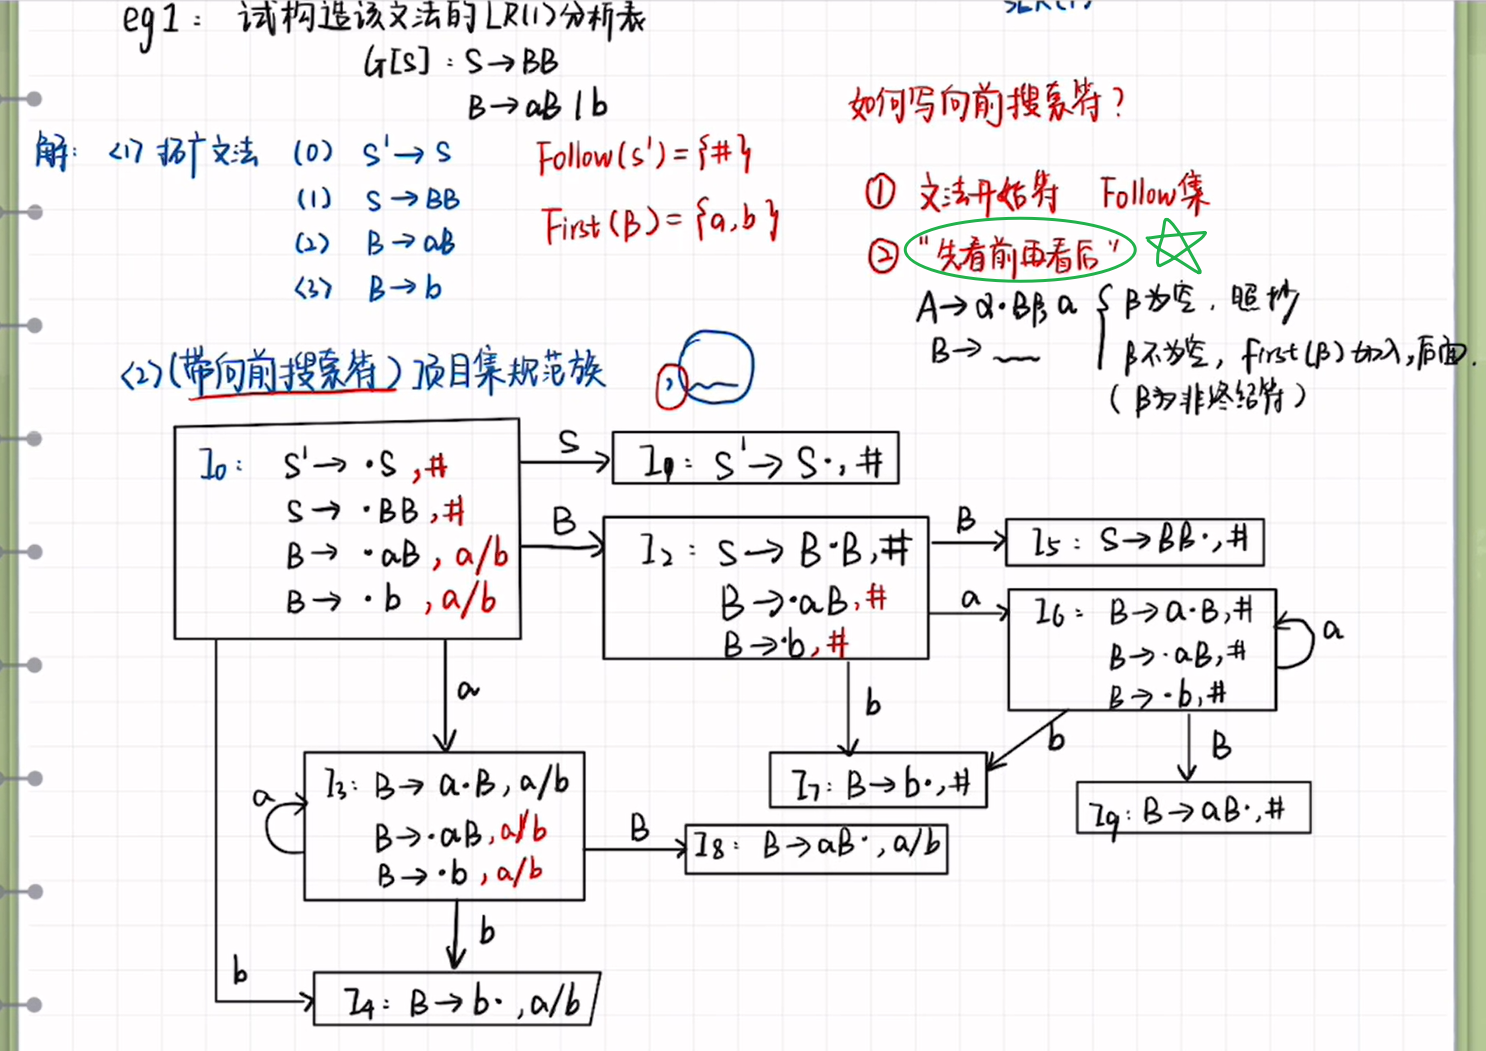 eg1： 试构造该文法的LR(1)分析表
G[S]：S→BB
B→aB | b
解：<1> 拓广文法 (0) S'→S
(1) S→BB
(2) B→aB
<3> B→b
Follow(S')={#}
First(B)={a,b}
如何写向前搜索符？
① 文法开始符 Follow集
② "先看前再看后"
A→α·Bβ, a { β为空，照抄
B→ β不为空，first(β)加入，后面．
(β为非终结符)
<2>(带向前搜索符)项目集规范族 ,
I0： S'→·S ,#
S→·BB ,#
B→·aB , a/b
B→·b , a/b
S
I1：S'→S·, #
B
I2：S→B·B, #
B→·aB, #
B→·b, #
B
I5：S→BB·, #
a
I6：B→a·B, #
B→·aB, #
B→·b, #
a
a
b
b
B
I3：B→a·B, a/b
B→·aB, a/b
B→·b , a/b
a
I7：B→b·, #
I9：B→aB·, #
B
I8：B→aB·, a/b
b
b
I4：B→b· , a/b